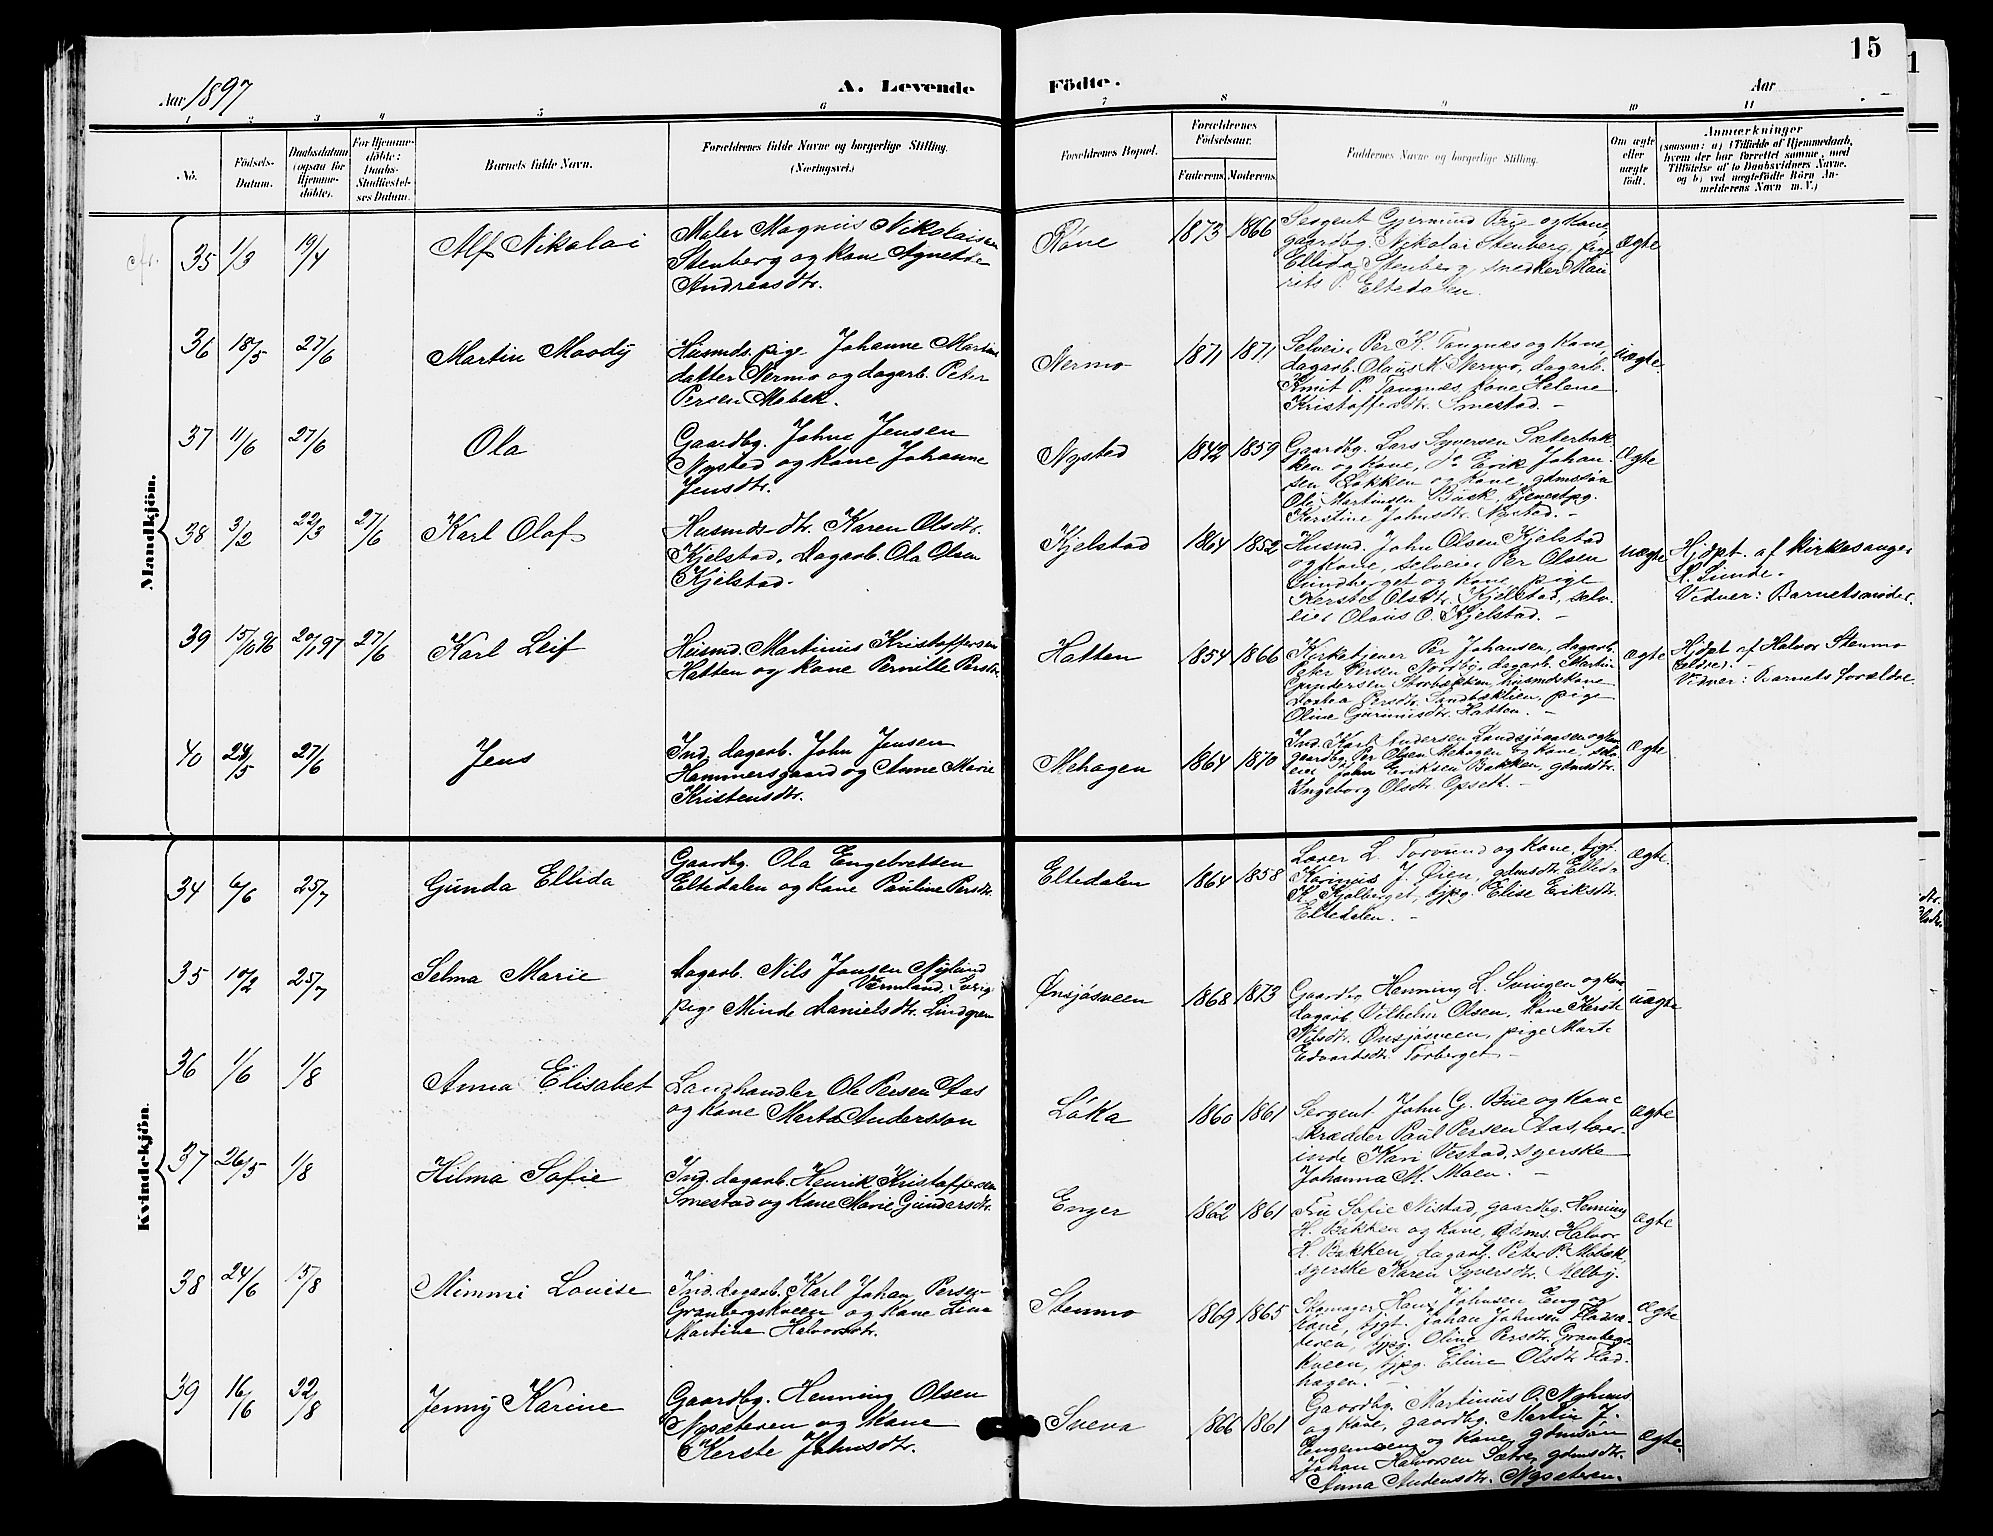 15
Aar 1897
A. Levende Födte.
Aar
1 2 3 4 5 6 7 8 9 10 11
No.
Födsels-Datum.
Daabsdatum (ogsaa for Hjemmedöbte).
For Hjemmedöbte: Daabs-Stadfæstelses Datum.
Barnets fulde Navn.
Forældrenes fulde Navne og borgerlige Stilling.
(Næringsvei.)
Forældrenes Bopæl.
Forældrenes Födselsaar.
Faderens. Moderens.
Faddernes Navne og borgerlige Stilling.
Om ægte eller uægte födt.
Anmærkninger
(saasom: a) i Tilfælde af Hjemmedaab, hvem der har forrettet samme, med Tilföielse af to Daabsvidners Navne, og b) ved uægtefödte Börn Anmelderens Navn m. V.)
Mandkjön.
35 1/3 19/4 Alf Nikolai
Maler Magnus Nikolaisen
Stenberg og kone Agnethe
Andreasdtr.
Röne 1873 1866
Sergent Gjermund Bue og kone,
gaardbg. Nikolai Stenberg, pige
Ellida Stenberg, snedker Mau
rits P. Eltedalen.
ægte
36 18/5 27/6 Martin Moody
Husmds. pige Johanne Martins
datter Nermo og dagarb. Peter
Persen Mobæk.
Nermo 1871 1871
Selveier Per K. Tangnæs og kone,
dagarb. Olaus M. Nermo, dagarb.
Knut P. Tangnæs, kone Helene
Kristoffersdtr. Smestad. -
uægte
37 11/6 27/6 Ola
Gaardbg. John Jensen
Nystad og kone Johanne
Jensdtr.
Nystad 1842 1859
Gaardbg. Lars Syversen Sæterbak
ken og kone, do Erik Johan-
sen Løkken og kone, gdmssön
Ole Martinsen Busk, tjenestpg.
Kerstine Johnsdtr. Nystad. -
Ægte
38 3/2 22/3 27/6 Karl Olaf
Husmds-dtr. Karen Olsdtr.
Kjelstad, Dagarb. Ola Olsen
Kjelstad.
Kjelstad 1864 1852
Husmd. John Olsen Kjelstad
og kone, selveier Per Olsen
Lundberget og kone, pige
Kersti Olsdtr. Kjelstad, selv-
eier Olaus O. Kjelstad. -
uægte
Hjdpt. af kirkesanger
K. Lunde.
Vidner: Barnets moder.
39 15/10 96 20/1 97 27/6 Karl Leif
Husmd. Martinus Kristoffersen
Hatten og kone Pernille Persdtr.
Hatten 1854 1866
Kirketjener Per Johansen, dagarb.
Peter Persen Nordby, dagarb. Martin
Gundersen Storbækken, husmdskone
Dortea Persdtr. Sandbæklien, pige
Oline Gunnusdtr. Hatten. -
ægte
Hjdpt. af Halvor Stenmo
(eldre).
Vidner: Barnets forældre
40 24/5 27/6 Jens
Ind. dagarb. John Jensen
Hammersgaard og Anne Marie
Kristensdtr.
Mehagen 1864 1870
Ind. Karl Andersen Landsjöaasen og kone
gaardbg. Per Olsen Mehagen og kone, selv-
eier John Eriksen Bakken, gdmsdtr.
Ingeborg Olsdtr. Opseth. -
Ægte
Kvindekjön.
34 6/6 25/7 Gunda Ellida
Gaardbg. Ola Engebretsen
Eltedalen og kone Pauline Persdtr.
Eltedalen 1864 1858
Lærer L. Torvund og kone, tjgt.
Karinus J. Øien, gdmsdtr. Ellida
K. Kjölberget, tjpg. Elise Eriksdtr.
Eltedalen. -
Ægte.
35 10/2 25/7 Selma Marie
Dagarb. Nils Jansen Nylund
Vermland. Sverig
pige Minda Danielsdtr. Lindgren
Ønsjösveen 1868 1873
Gaardbg. Henning L. Svingen og kone
dagarb. Vilhelm Olsen, kone Kersti
Nilsdtr. Ønsjösveen, pige Marte
Edvardsdtr. Torberget. -
uægte
36 1/6 1/8 Anna Elisabet
Landhandler Ole Persen Aas
og kone Marta Andersson
Löka 1860 1861
Sergent John G. Bue og kone
skrædder Paul Persen Aas, lærer-
inde Kari Vestad, syerske
Johanna M. Moen. -
ægte
37 26/5 1/8 Hilma Sofie
Ind. dagarb. Henrik Kristoffersen
Smestad og kone Marie Gundersdtr.
Enger 1862 1861
Fru Sofie Nistad, gaardbg. Henning
H. Bakken og kone, gdms. Halvor
H. Bakken, dagarb. Peter P. Mobæk,
syerske Karen Syversdtr. Melby.
ægte
38 24/6 15/8 Mimmi Louise
Ind. dagarb. Karl Johan Persen
Granbergskveen og kone Lina
Martine Halvorsdtr.
Stenmo 1869 1865
Skomager Hans Johnsen Eng og
kone, tjgt. Johan Johnsen Fladsæ-
teren, tjpg. Oline Persdtr. Granbegs-
kveen, tjpg. Eline Olsdtr. Flad-
hagen. -
Ægte
39 16/6 22/8 Jenny Karine
Gaardbg. Henning Olsen
Nysæteren og kone
Kerste Johnsdtr.
Sneva 1866 1861
Gaardbg. Martinus O. Nyhuus
og kone, gaardbg. Martin J.
Engemoen og kone, gdmssön
Johan Halvorsen Sætre, gdmsdtr.
Anna Andersdtr. Nysæteren.
Ægte.